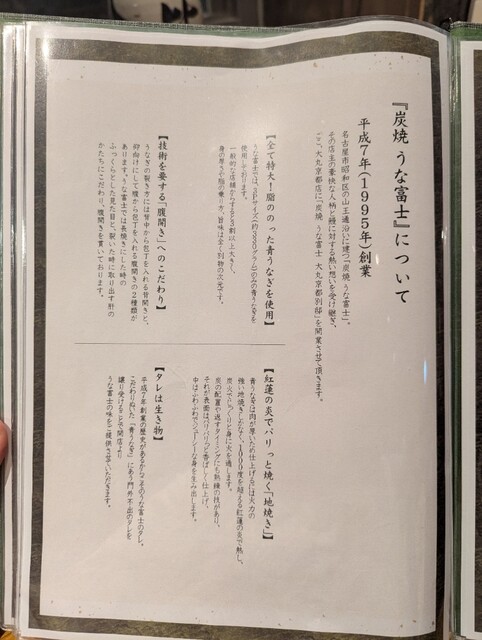 『炭焼 うな富士』について
平成7年(1995年)創業
名古屋市昭和区の山王通沿いに建つ「炭焼 うな富士」。
その店主の豪快な人柄と鰻に対する熱い想いを受け継ぎ、
ここ、大丸京都店に「炭焼 うな富士 大丸京都別邸」を開業させて頂きます。
【全て特大!脂ののった青うなぎを使用】
うな富士では、3Pサイズ(約330グラム)のみの青うなぎを
使用しております。
一般的な店舗からすると3割以上大きく、
身の厚さや脂の乗り方、旨味は全く別物の次元です。
【技術を要する「腹開き」へのこだわり】
うなぎの裂き方には背中から包丁を入れる背開きと、
仰向けにして腹から包丁を入れる腹開きの2種類が
あります。うな富士では長焼きにした時の
ふっくらとした見た目と、裂いた時に取り出す肝の
かたちにこだわり、腹開きを貫いております。
【紅蓮の炎でパリっと焼く「地焼き」】
青うなぎは肉が厚いため仕上げるには火力の
強い地焼きしかなく、1000度を超える紅蓮の炎で熱し、
炭火でじっくりと身に火を通します。
炭の配置や返すタイミングにも熟練の技があり、
それが表面はパリパリっと香ばしく仕上げ、
中はふわふわでジューシーな身を生み出します。
【タレは生き物】
平成7年創業の歴史があるからこそのうな富士のタレ。
こだわりぬいた「青うなぎ」にあう門外不出のタレを
譲り受けることで開店より
うな富士の味をご提供させていただきます。